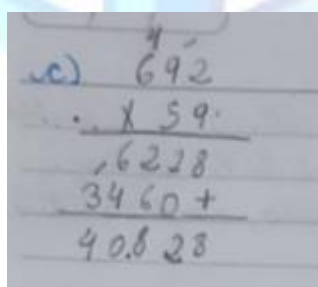 4
c) 692
x 59
6228
3460+
40.828